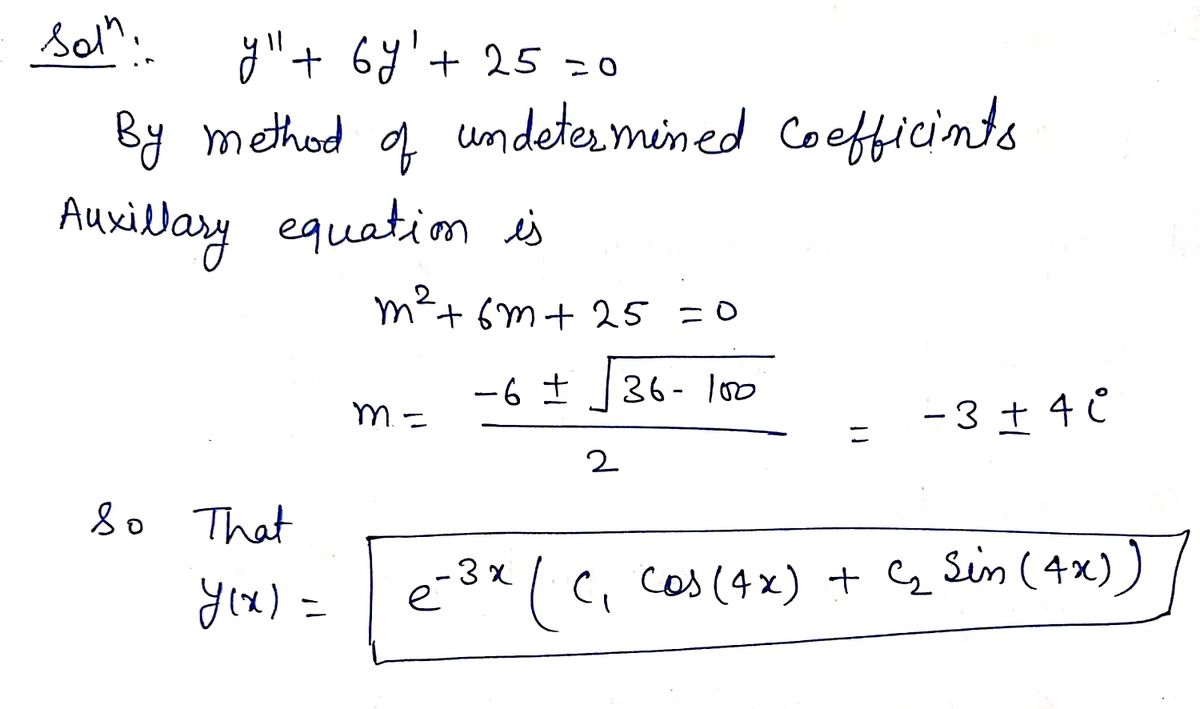 Solⁿ:. y'' + 6y' + 25 = 0
By method of undetermined Coefficints
Auxillary equation is
m² + 6m + 25 = 0
m = (-6 ± √(36 - 100))/2 = -3 ± 4i
So That
y(x) = e^(-3x) (C₁ Cos(4x) + C₂ Sin(4x))